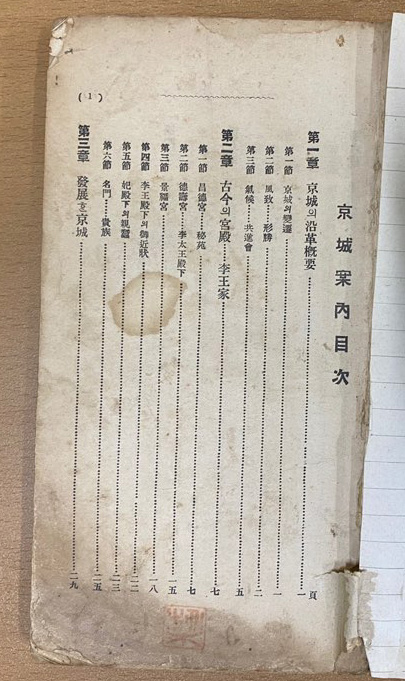 京城案內目次
頁
第一章 京城의沿革槪要……一
第一節 京城의變遷……一
第二節 風致……形勝……二
第三節 氣候……共進會……五
第二章 古今의宮殿……李王家……七
第一節 昌德宮……秘苑……七
第二節 德壽宮……李太王殿下……一五
第三節 景福宮……一八
第四節 李王殿下의御近狀……二二
第五節 妃殿下의親蠶……二三
第六節 名門……貴族……二五
第三章 發展할京城……二九
(1)